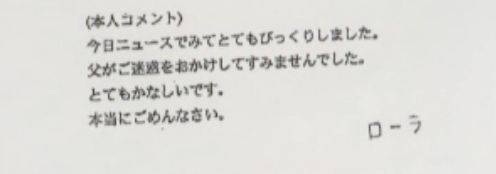 (本人コメント)
今日ニュースでみてとてもびっくりしました。
父がご迷惑をおかけしてすみませんでした。
とてもかなしいです。
本当にごめんなさい。
ローラ